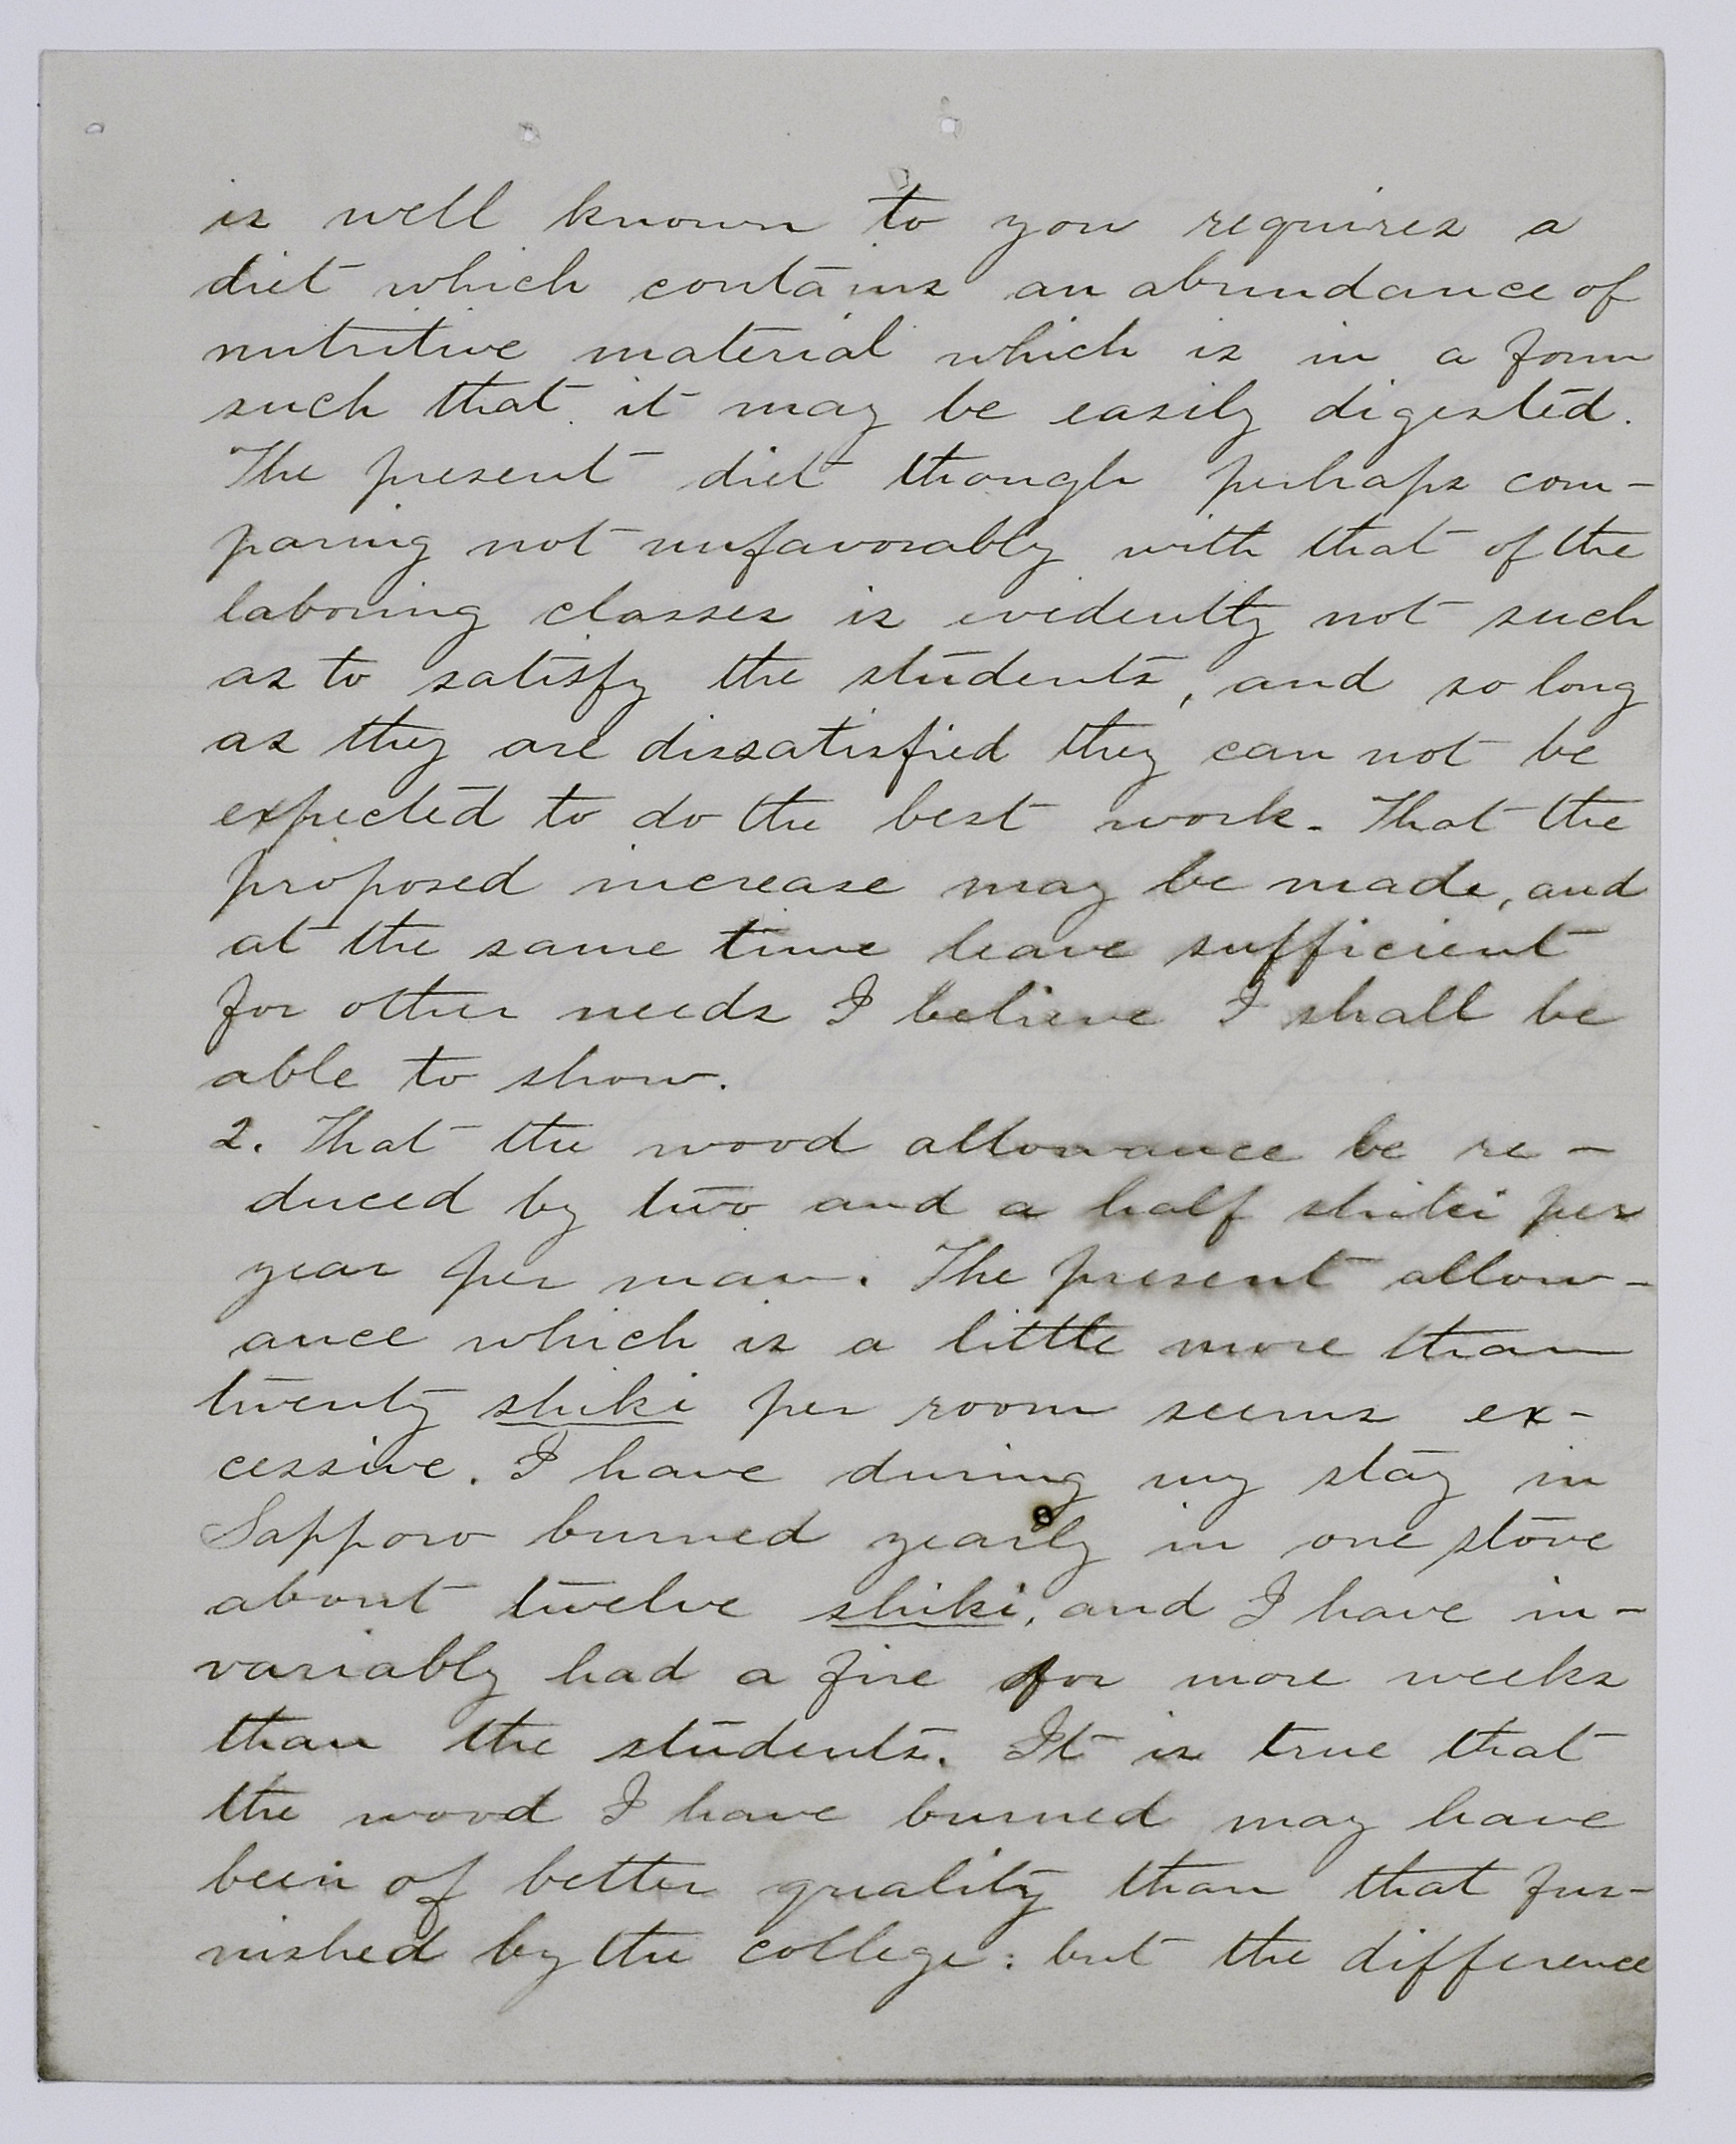 is well known to you requires a
diet which contains an abundance of
nutritive material which is in a form
such that it may be easily digested.
The present diet though perhaps com-
paring not unfavorably with that of the
laboring classes is evidently not such
as to satisfy the students, and so long
as they are dissatisfied they can not be
expected to do the best work. That the
proposed increase may be made, and
at the same time leave sufficient
for other needs I believe I shall be
able to show.
2. That the wood allowance be re-
duced by two and a half shiki per
year per man. The present allow-
ance which is a little more than
twenty shiki per room seems ex-
cessive. I have during my stay in
Sapporo burned yearly in one stove
about twelve shiki, and I have in-
variably had a fire for more weeks
than the students. It is true that
the wood I have burned may have
been of better quality than that fur-
nished by the college: but the difference